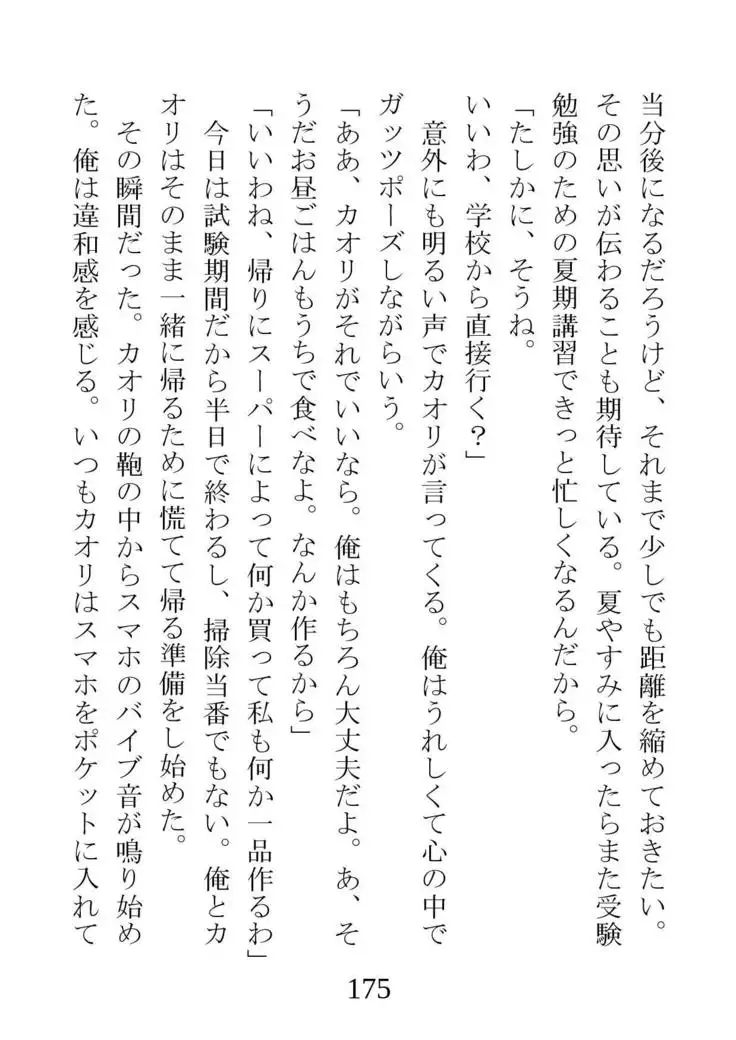 当分後になるだろうけど、それまで少しでも距離を縮めておきたい。
その思いが伝わることも期待している。夏やすみに入ったらまた受験
勉強のための夏期講習できっと忙しくなるんだから。
「たしかに、そうね。
いいわ、学校から直接行く？」
意外にも明るい声でカオリが言ってくる。俺はうれしくて心の中で
ガッツポーズしながらいう。
「ああ、カオリがそれでいいなら。俺はもちろん大丈夫だよ。あ、そ
うだお昼ごはんもうちで食べなよ。なんか作るから」
「いいわね、帰りにスーパーによって何か買って私も何か一品作るわ」
今日は試験期間だから半日で終わるし、掃除当番でもない。俺とカ
オリはそのまま一緒に帰るために慌てて帰る準備をし始めた。
その瞬間だった。カオリの鞄の中からスマホのバイブ音が鳴り始め
た。俺は違和感を感じる。いつもカオリはスマホをポケットに入れて
175